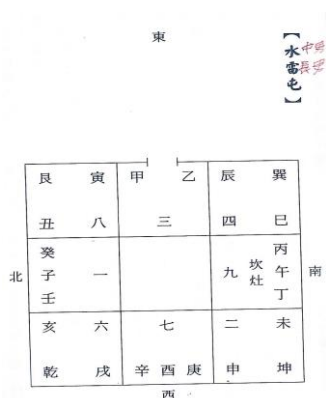 東
【水雷屯】
艮 寅 甲 乙 辰 巽
丑 八 三 四 巳
北
癸子壬
一
九
坎灶
丙午丁
南
亥 六 七 二 未
乾 戌 辛 酉 庚 申 坤
西